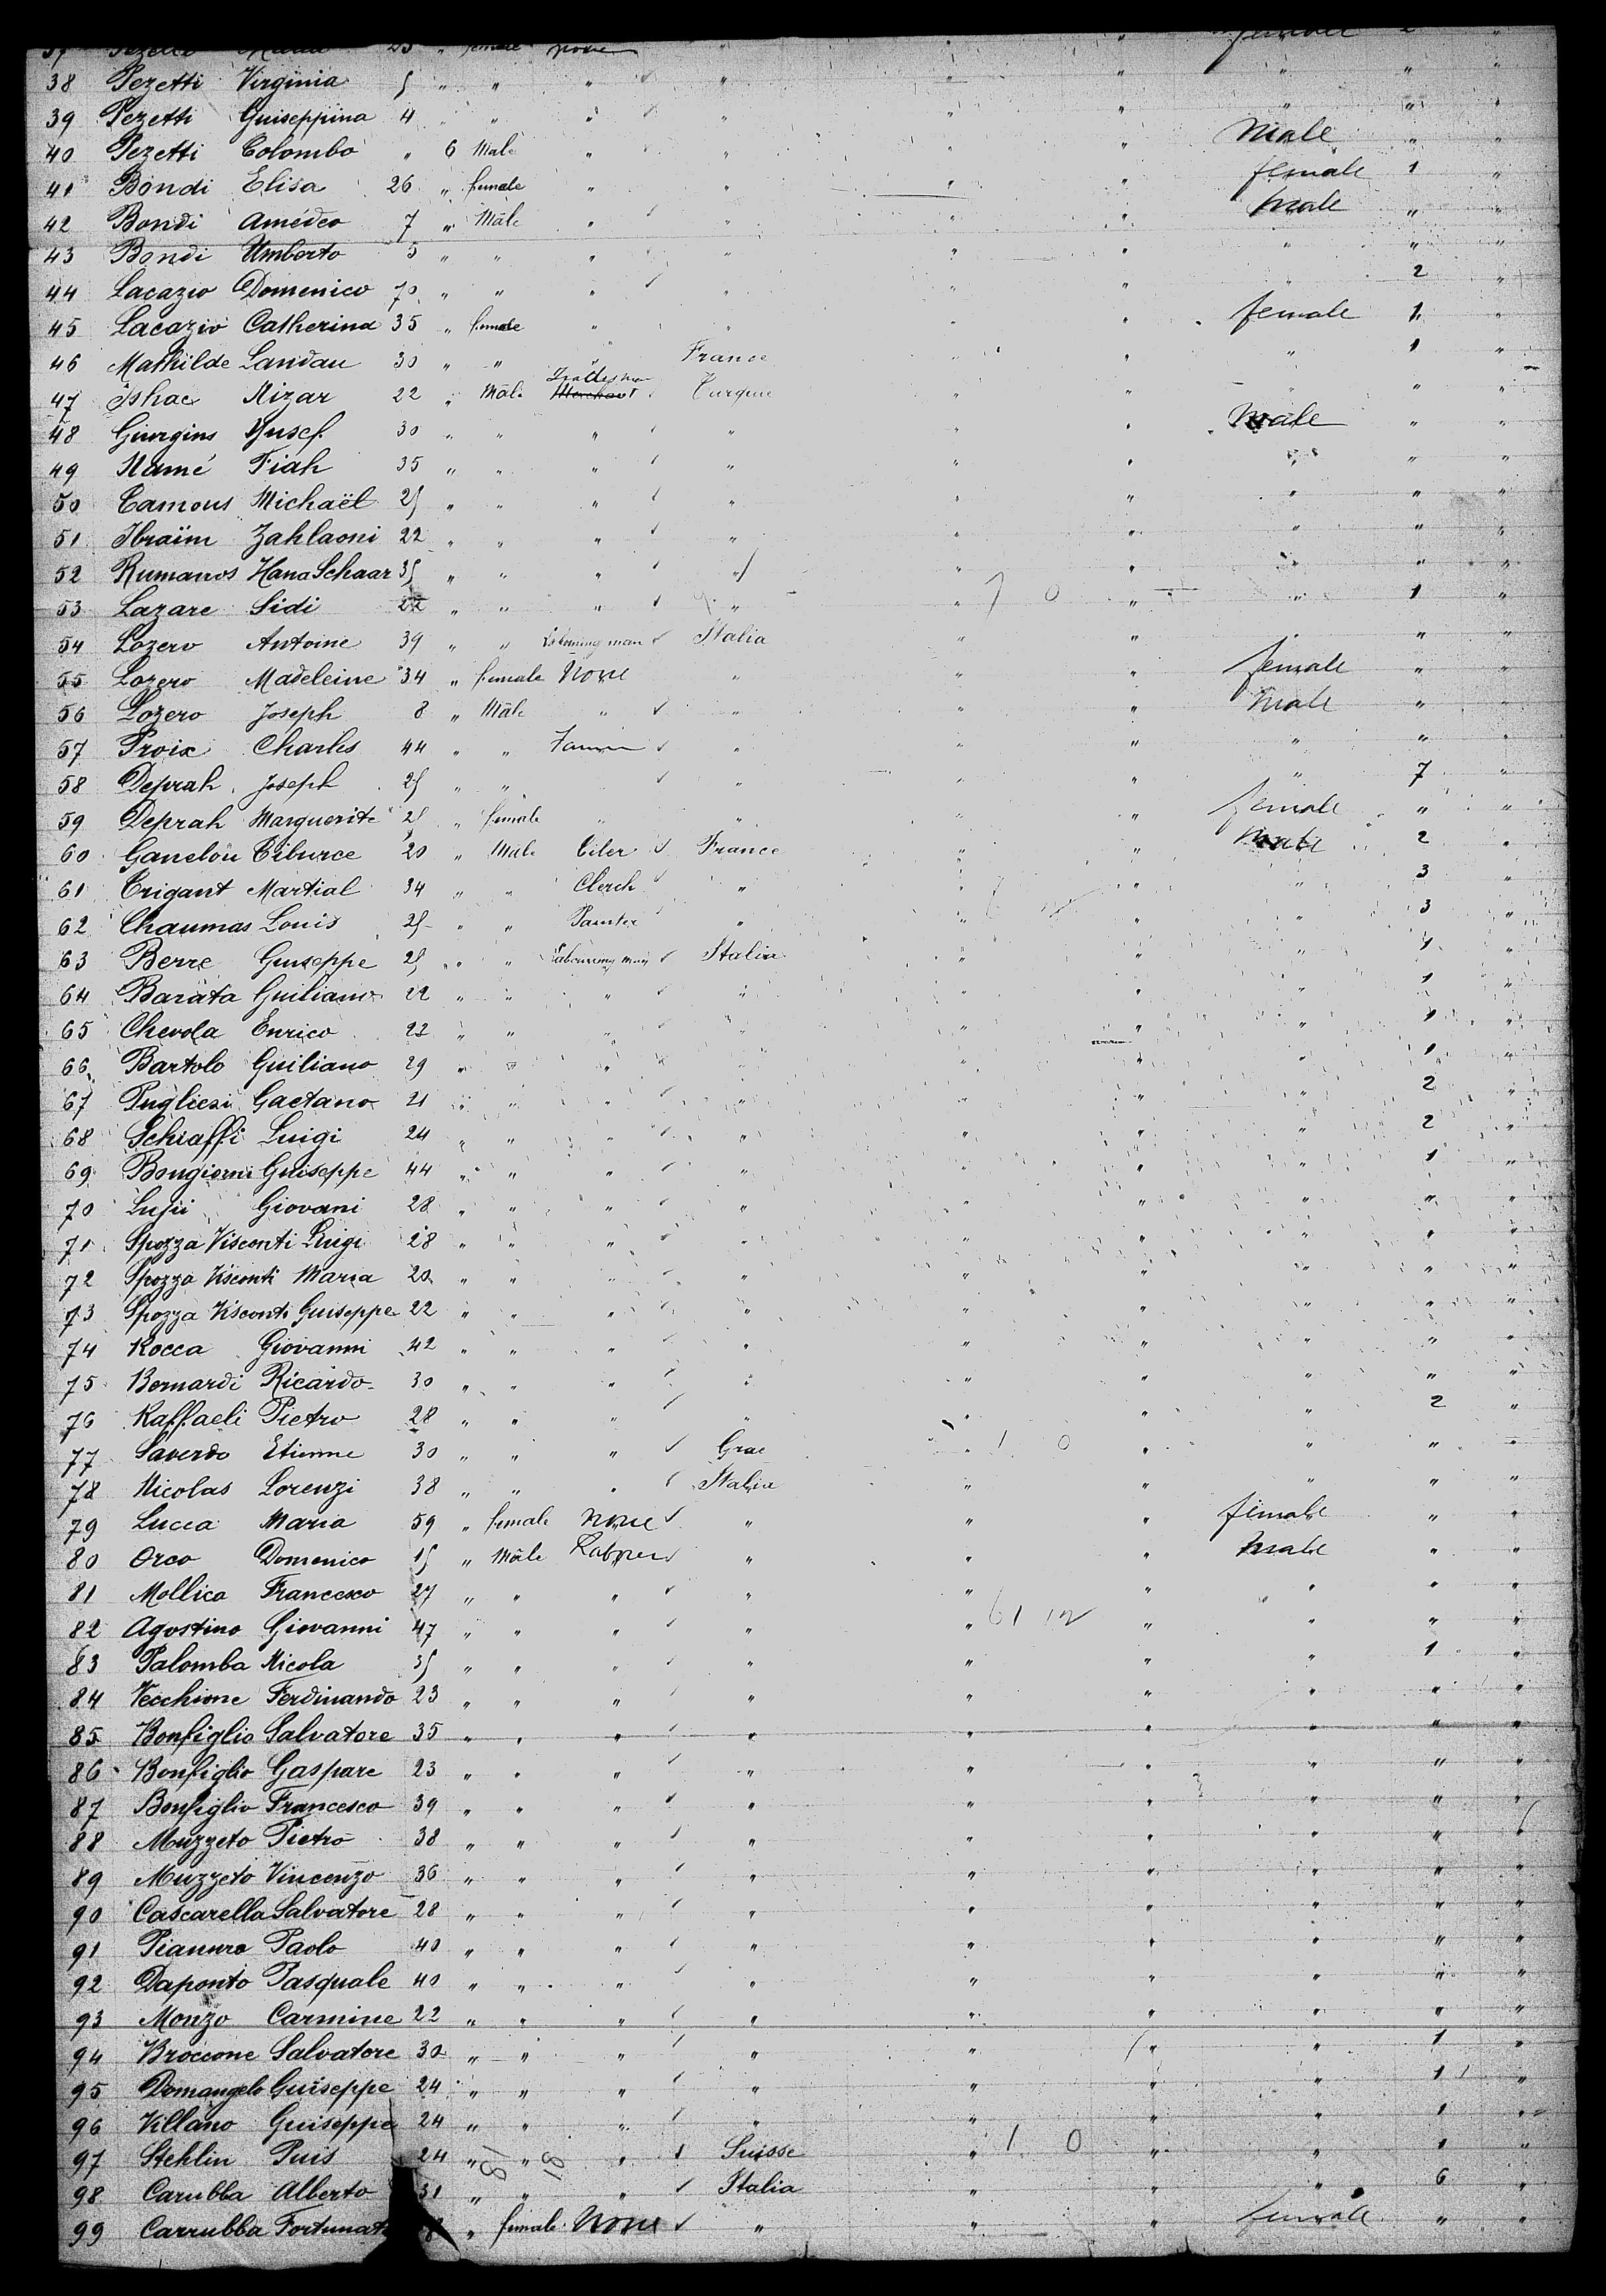 38 Pezetti Virginia 5 " " " " " " " " "
39 Pezetti Guiseppina 4 " " " " " " " " "
40 Pezetti Colombo " 6 Male " " " " Male " "
41 Bondi Elisa 26 " female " " " " female 1 "
42 Bondi Amédeo 7 " Male " " " " Male " "
43 Bondi Umberto 5 " " " " " " " " "
44 Lacazio Domenico 70 " " " " " " " 2 "
45 Lacazio Catherina 35 " female " " " " female 1 "
46 Mathilde Landau 30 " " " France " " " 1 "
47 Ishac Nizar 22 " Male Tradesman Turquie " " " " "
48 Giurgius Yusef 30 " " " " " " Male " "
49 Namé Fiah 35 " " " " " " " " "
50 Tamous Michaël 25 " " " " " " " " "
51 Ibraïm Zahlaoni 22 " " " " " " " " "
52 Rumanos Hana Schaar 35 " " " " " " " " "
53 Lazare Sidi 22 " " " " " 7 0 " " 1 "
54 Lozero Antoine 39 " " Labouring man Italia " " " " "
55 Lozero Madeleine 34 " female None " " " female " "
56 Lozero Joseph 8 " Male " " " " Male " "
57 Proix Charles 44 " " " " " " " "
58 Deprah Joseph 25 " " " " " " 7 "
59 Deprah Marguerite 25 " female " " " " female " "
60 Ganelou Tiburce 20 " Male Tiler France " " Male 2 "
61 Trigant Martial 34 " " Clerck " " " " 3 "
62 Chaumas Louis 25 " " Painter " " " " 3 "
63 Berre Guiseppe 25 " " Labouring man Italia " " " 1 "
64 Barata Guiliano 22 " " " " " " " 1 "
65 Chevola Enrico 22 " " " " " " " 1 "
66 Bartolo Guiliano 29 " " " " " " " 1 "
67 Pugliesi Gaetano 21 " " " " " " " 2 "
68 Schiaffi Luigi 24 " " " " " " " 2 "
69 Bongiorni Guiseppe 44 " " " " " " " 1 "
70 Giovani 28 " " " " " " " " "
71 Spozza Visconti Luigi 28 " " " " " " " " "
72 Spozza Visconti Maria 20 " " " " " " " " "
73 Spozza Visconti Guiseppe 22 " " " " " " " " "
74 Rocca Giovanni 42 " " " " " " " " "
75 Bernardi Ricardo 30 " " " " " " " " "
76 Raffaeli Pietro 28 " " " " " " " 2 "
77 Saverdo Etienne 30 " " " Grec " 1 0 " " " "
78 Nicolas Lorenzi 38 " " " Italia " " " " "
79 Lucca Maria 59 " female None " " " female " "
80 Orco Domenico 15 " Male Labrer " " " Male " "
81 Mollica Francesco 27 " " " " " " " " "
82 Agostino Giovanni 47 " " " " " 61 12 " " " "
83 Palomba Nicola 35 " " " " " " " 1 "
84 Vecchione Ferdinando 23 " " " " " " " " "
85 Bonfiglio Salvatore 35 " " " " " " " " "
86 Bonfiglio Gaspare 23 " " " " " " " " "
87 Bonfiglio Francesco 39 " " " " " " " " "
88 Muzzeto Pietro 38 " " " " " " " "
89 Muzzeto Vincenzo 36 " " " " " " " " "
90 Cascarella Salvatore 28 " " " " " " " " "
91 Pianuro Paolo 40 " " " " " " " " "
92 Daponto Pasquale 40 " " " " " " " " "
93 Monzo Carmine 22 " " " " " " " " "
94 Broccone Salvatore 30 " " " " " " " 1 "
95 Domangelo Guiseppe 24 " " " " " " " 1 "
96 Villano Guiseppe 24 " " " " " " " 1 "
97 Stehlin Puis 24 " " " Suisse " 1 0 " " 1 "
98 Carubba Alberto 31 " " " Italia " " " 6 "
99 Carrubba " female None " " " female " "